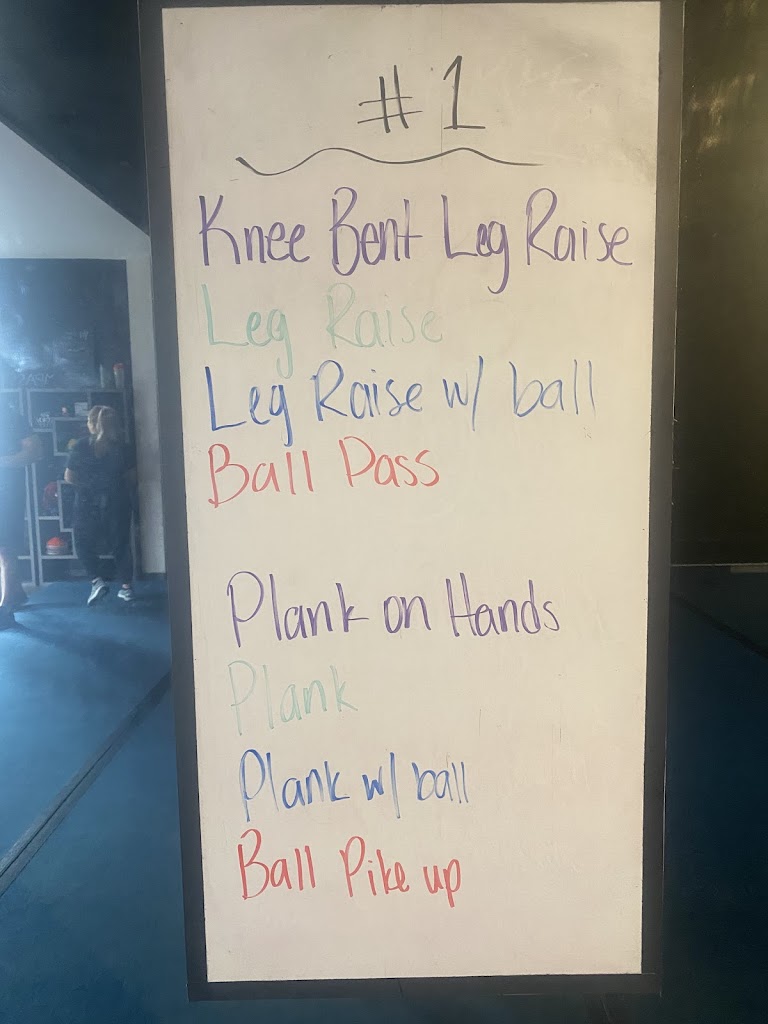 #1
Knee Bent Leg Raise
Leg Raise
Leg Raise w/ ball
Ball Pass
Plank on Hands
Plank
Plank w/ ball
Ball Pike up